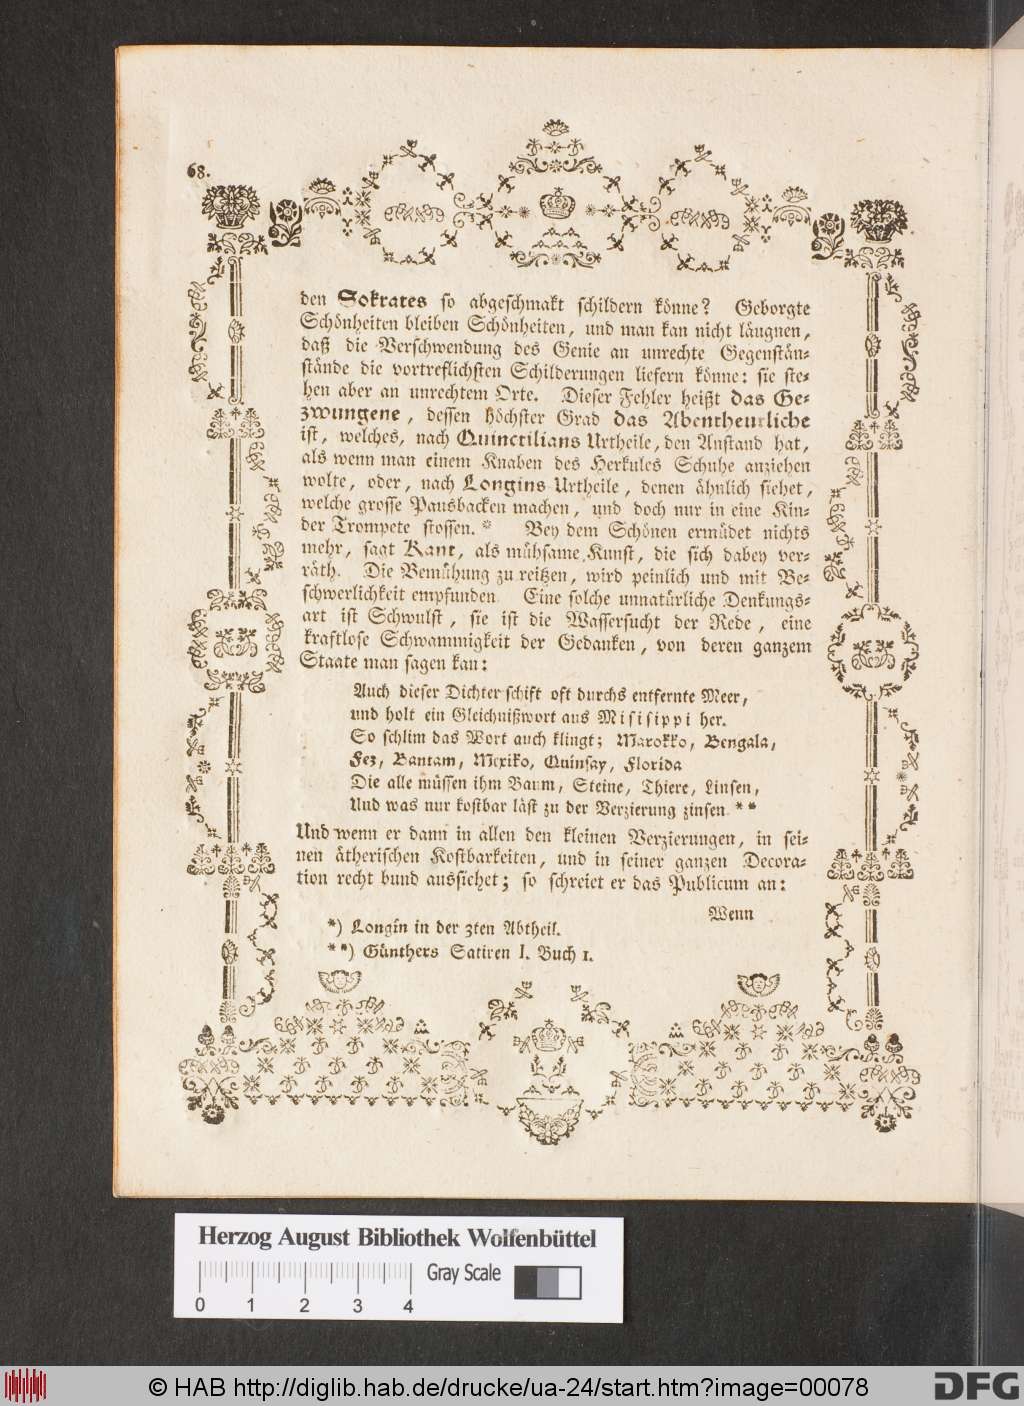 68.
den Sokrates so abgeschmakt schildern könne? Geborgte
Schönheiten bleiben Schönheiten, und man kan nicht läugnen,
daß die Verschwendung des Genie an unrechte Gegenstän-
stände die vortreflichsten Schilderungen liefern könne: sie ste-
hen aber an unrechtem Orte. Dieser Fehler heißt das Ge-
zwungene, dessen höchster Grad das Abentheurliche
ist, welches, nach Quinctilians Urtheile, den Anstand hat,
als wenn man einem Knaben des Herkules Schuhe anziehen
wolte, oder, nach Longins Urtheile, denen ähnlich siehet,
welche grosse Pausbacken machen, und doch nur in eine Kin-
der Trompete stossen. * Bey dem Schönen ermüdet nichts
mehr, sagt Kant, als mühsame Kunst, die sich dabey ver-
räth. Die Bemühung zu reitzen, wird peinlich und mit Be-
schwerlichkeit empfunden. Eine solche unnatürliche Denkungs-
art ist Schwulst, sie ist die Wassersucht der Rede, eine
kraftlose Schwammigkeit der Gedanken, von deren ganzem
Staate man sagen kan:
Auch dieser Dichter schift oft durchs entfernte Meer,
und holt ein Gleichnißwort aus Misisippi her.
So schlim das Wort auch klingt; Marokko, Bengala,
Fez, Bantam, Mexiko, Quinsay, Florida
Die alle müssen ihm Baum, Steine, Thiere, Linsen,
Und was nur kostbar läst zu der Verzierung zinsen **
Und wenn er dann in allen den kleinen Verzierungen, in sei-
nen ätherischen Kostbarkeiten, und in seiner ganzen Decora-
tion recht bund aussiehet; so schreiet er das Publicum an:
Wenn
*) Longin in der 3ten Abtheil.
**) Günthers Satiren I. Buch 1.
Herzog August Bibliothek Wolfenbüttel
Gray Scale
0 1 2 3 4
© HAB http://diglib.hab.de/drucke/ua-24/start.htm?image=00078
DFG